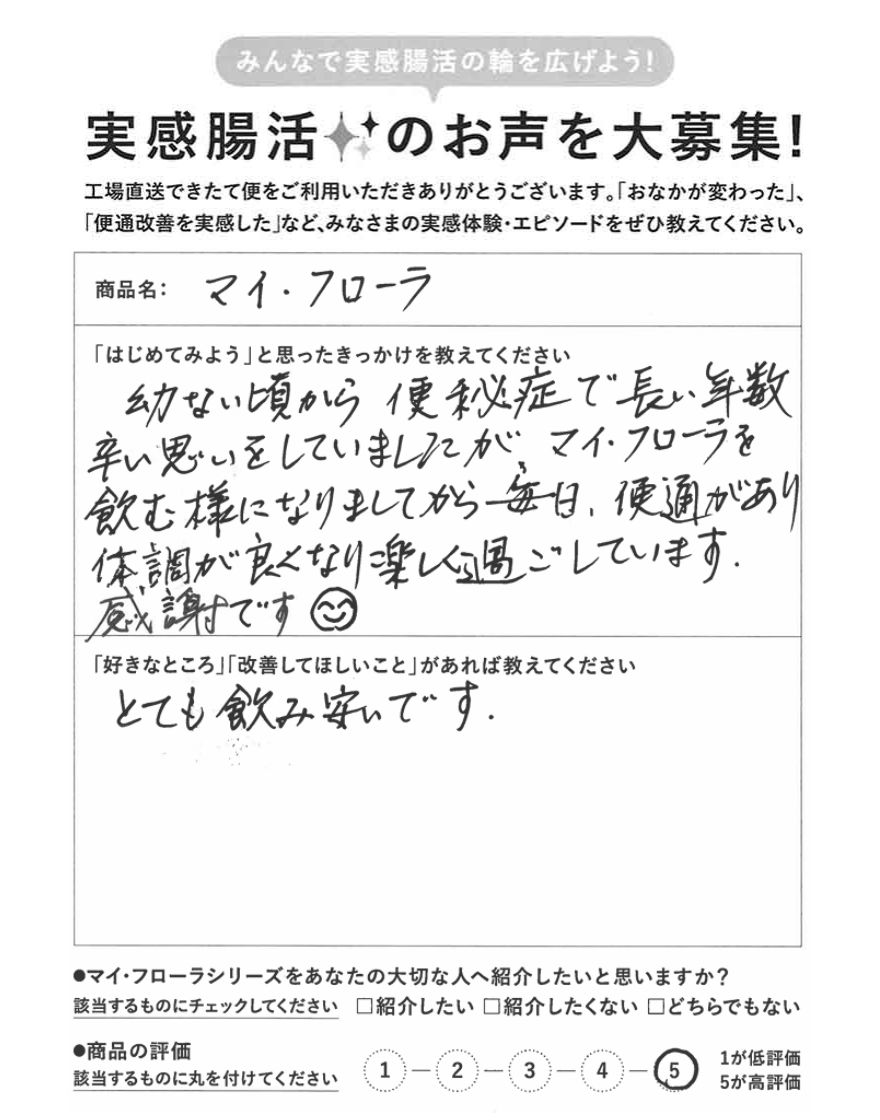 みんなで実感腸活の輪を広げよう!
実感腸活のお声を大募集!
工場直送できたて便をご利用いただきありがとうございます。「おなかが変わった」、
「便通改善を実感した」など、みなさまの実感体験・エピソードをぜひ教えてください。
商品名: マイ・フローラ
「はじめてみよう」と思ったきっかけを教えてください
幼ない頃から便秘症で長い年数
辛い思いをしていましたが、マイ・フローラを
飲む様になりましてから毎日、便通があり
体調が良くなり楽しく過ごしています.
感謝です
「好きなところ」「改善してほしいこと」があれば教えてください
とても飲み安いです.
●マイ・フローラシリーズをあなたの大切な人へ紹介したいと思いますか?
該当するものにチェックしてください □紹介したい □紹介したくない □どちらでもない
●商品の評価
該当するものに丸を付けてください 1 — 2 — 3 — 4 — 5
1が低評価
5が高評価